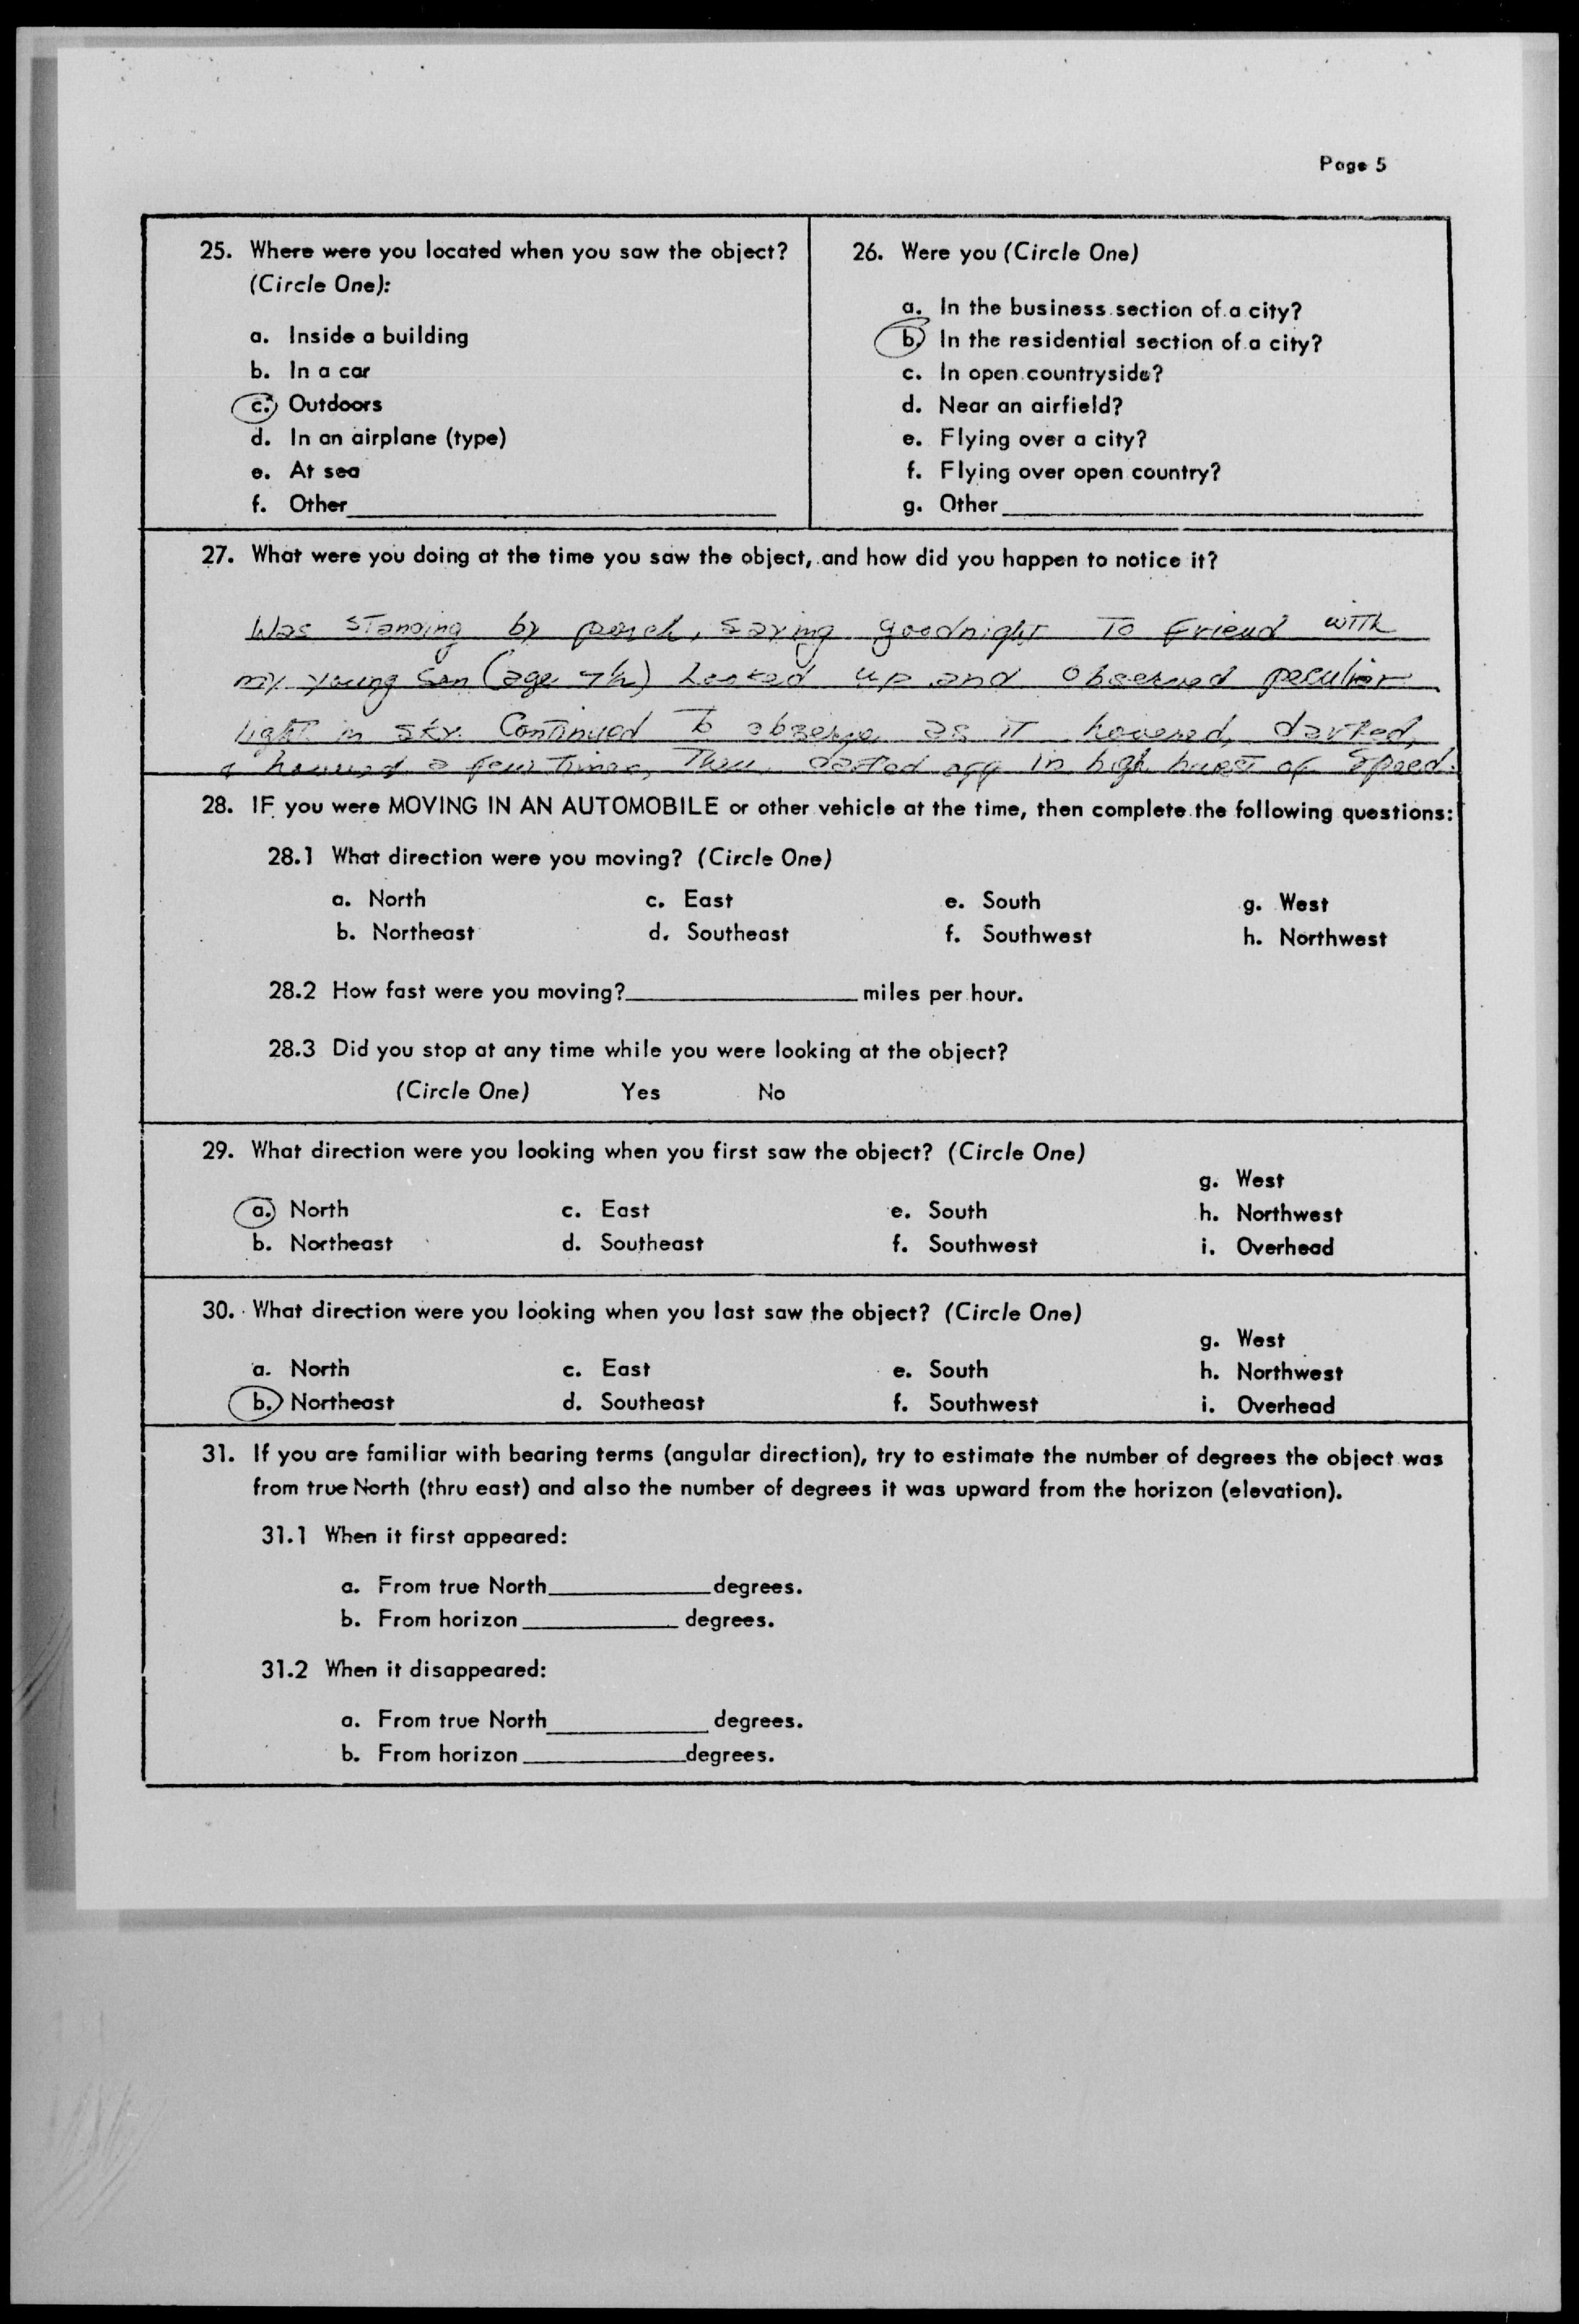 Page 5
25. Where were you located when you saw the object?
(Circle One):
a. Inside a building
b. In a car
c. Outdoors
d. In an airplane (type)
e. At sea
f. Other
26. Were you (Circle One)
a. In the business section of a city?
b. In the residential section of a city?
c. In open countryside?
d. Near an airfield?
e. Flying over a city?
f. Flying over open country?
g. Other
27. What were you doing at the time you saw the object, and how did you happen to notice it?
Was standing by porch, saying goodnight to friend with
my young son (age) Looked up and observed peculiar
light in sky. Continued to observe as it hovered, darted,
& hovered a few times, Then darted off in high burst of speed.
28. IF you were MOVING IN AN AUTOMOBILE or other vehicle at the time, then complete the following questions:
28.1 What direction were you moving? (Circle One)
a. North c. East e. South g. West
b. Northeast d. Southeast f. Southwest h. Northwest
28.2 How fast were you moving? miles per hour.
28.3 Did you stop at any time while you were looking at the object?
(Circle One) Yes No
29. What direction were you looking when you first saw the object? (Circle One)
g. West
a. North c. East e. South h. Northwest
b. Northeast d. Southeast f. Southwest i. Overhead
30. What direction were you looking when you last saw the object? (Circle One)
g. West
a. North c. East e. South h. Northwest
b. Northeast d. Southeast f. Southwest i. Overhead
31. If you are familiar with bearing terms (angular direction), try to estimate the number of degrees the object was
from true North (thru east) and also the number of degrees it was upward from the horizon (elevation).
31.1 When it first appeared:
a. From true North degrees.
b. From horizon degrees.
31.2 When it disappeared:
a. From true North degrees.
b. From horizon degrees.